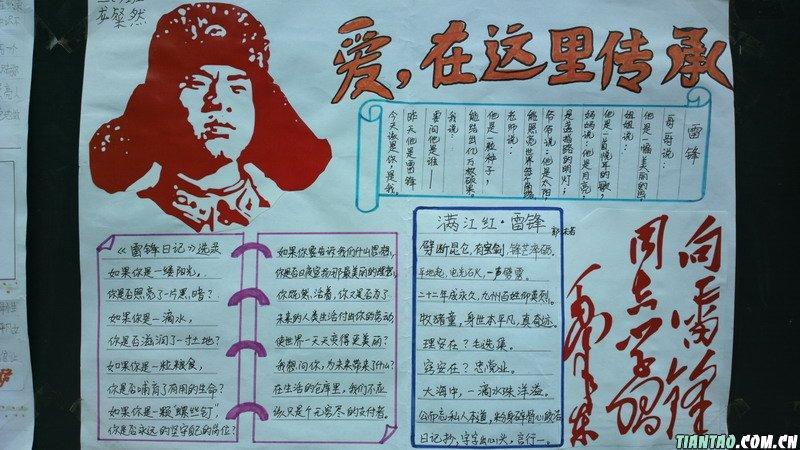 爱，在这里传承
雷锋
哥哥说：
他是一幅美丽的
姐姐说：
他是一首悦耳的歌，
妈妈说：他是月亮，
路的明灯；
爷爷说：他是太阳，
能照亮世界每个角落
老师说：
他是一粒种子，
能结出亿万颗硕果。
我说：
要问他是谁——
昨天他是雷锋
今天该是你，是我。
《雷锋日记》选录
如果你是一缕阳光，
你是否照亮了一片黑暗？
如果你是一滴水，
你是否滋润了一寸土地？
如果你是一粒粮食，
你是否哺育了有用的生命？
如果你是一颗“螺丝钉”
你是否永远的坚守自己的岗位？
如果你要告诉我们什么思想，
你是否日夜宣扬那最美丽的理想，
你既然活着，你又是否为了
未来的人类生活付出你的劳动，
使世界一天天变得更美丽？
我想问你，为未来带来了什么？
在生活的仓库里，我们不应
该只是个无穷尽的支付者。
满江红·雷锋
郭沫若
劈断昆仑，有宝剑，锋芒淬砺。
平地起，电光石火，一声劈雷。
二十二年成永久，九州百姓仰英烈。
牧猪童，身世本平凡，真奇迹。
理安在？毛选集。
容安在？忠党业。
大海中，一滴水珠洋溢。
公而忘私人本道，粉身碎骨心
日记抄，字字出心头，言行一。
向雷锋
同志学习
毛泽东
TIANTAO.COM.CN